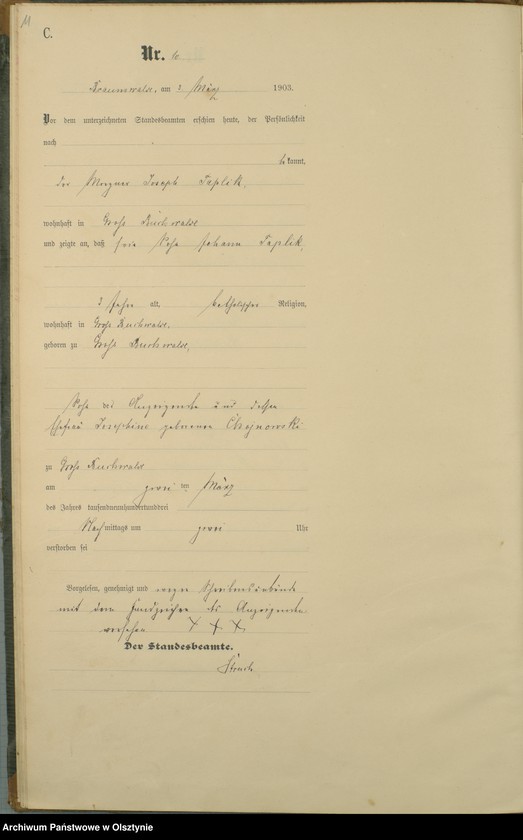 11
C.
Nr. 10
Braunswalde, am 3. März 1903.
Vor dem unterzeichneten Standesbeamten erschien heute, der Persönlichkeit
nach
bekannt,
der Joseph Taplik,
wohnhaft in Groß Buchwalde
und zeigte an, daß sein Sohn Johann Taplik,
3 Jahre alt, katholischer Religion,
wohnhaft in Groß Buchwalde,
geboren zu Groß Buchwalde,
Sohn des Anzeigenden und dessen
Ehefrau Josephine geborenen
zu Groß Buchwalde
am zwei ten März
des Jahres tausendneunhundertunddrei
Nachmittags um zwei Uhr
verstorben sei
Vorgelesen, genehmigt und wegen
mit dem Handzeichen des Anzeigenden
versehen X X X
Der Standesbeamte.